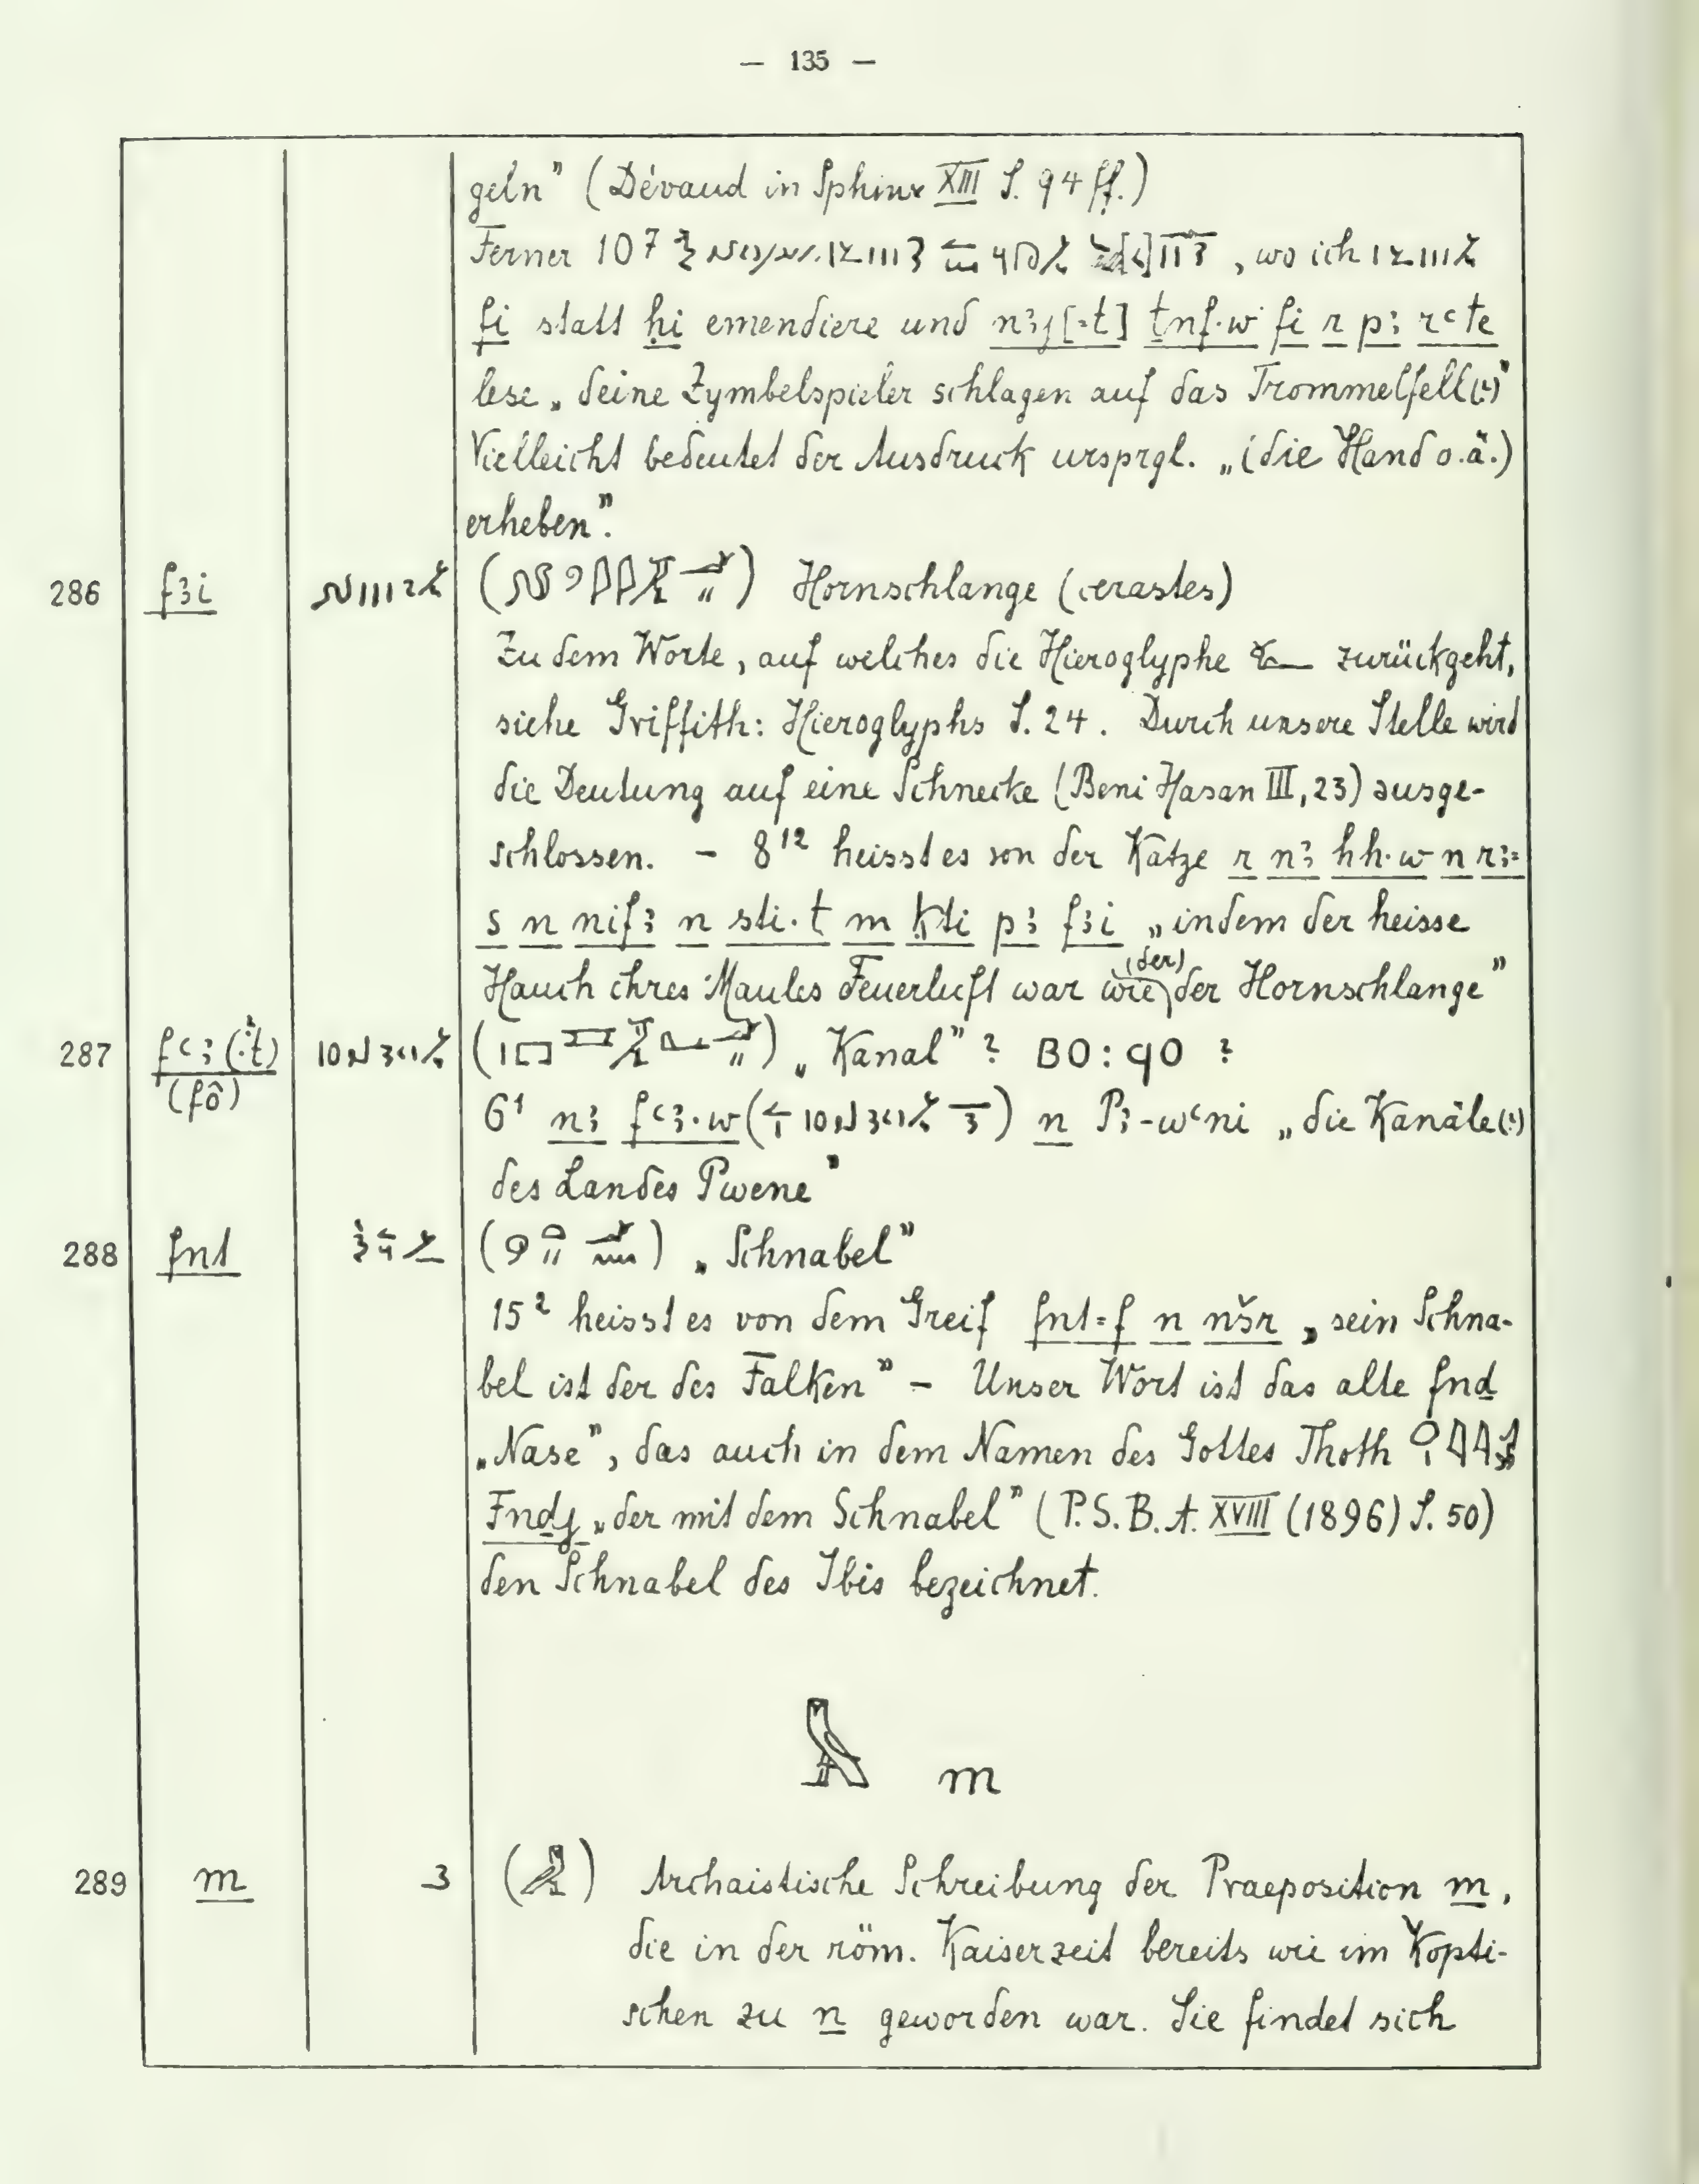 — 135 —
geln” (Dévaud in Sphinx XIII S. 94 ff.)
Ferner 10⁷ , wo ich
fi statt hi emendiere und nꜣj[=t] tnf·w fi r pꜣ rꜥte
lese „deine Zymbelspieler schlagen auf das Trommelfell(?)”
Vielleicht bedeutet der Ausdruck ursprgl. „(die Hand o.ä.)
erheben”.
286 fꜣi ( ) Hornschlange (cerastes)
Zu dem Worte, auf welches die Hieroglyphe 𓆑 zurückgeht,
siehe Griffith: Hieroglyphs S. 24. Durch unsere Stelle wird
die Deutung auf eine Schnecke (Beni Hasan III, 23) ausge-
schlossen. – 8¹² heisst es von der Katze r nꜣ hh·w n rꜣ=
s n nifꜣ n sti·t m ḳti pꜣ fꜣi „indem der heisse
Hauch ihres Maules Feuerluft war wie (der) der Hornschlange”
287 fꜥꜣ(·t)? (fô) ( ) „Kanal”? ⲂⲞ : ϤⲞ ?
6¹ nꜣ fꜥꜣ·w ( ) n Pꜣ-wꜥni „die Kanäle(?)
des Landes Pwene”
288 fnt ( ) „Schnabel”
15² heisst es von dem Greif fnt=f n nšr „sein Schna-
bel ist der des Falken” – Unser Wort ist das alte fnḏ
„Nase”, das auch in dem Namen des Gottes Thoth
Fnḏj „der mit dem Schnabel” (P.S.B.A. XVIII (1896) S. 50)
den Schnabel des Ibis bezeichnet.
𓅓 m
289 m (𓅓) Archaistische Schreibung der Praeposition m,
die in der röm. Kaiserzeit bereits wie im Kopti-
schen zu n geworden war. Sie findet sich